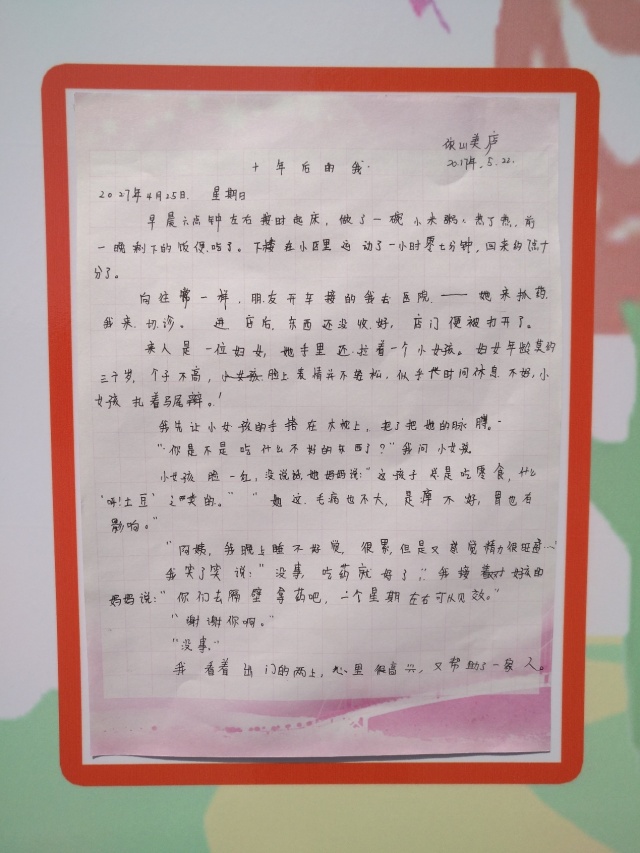 2017年.5.22.
十年后的我.
2027年4月25日. 星期日
早晨六点钟左右按时起床,做了一碗小米粥,热了热,前
一晚剩下的饭便吃了。下楼在小区里运动了一小时零七分钟,回来约
分了。
向往常一样,朋友开车接的我去医院,——她来抓药,
我来切诊。进店后,东西还没收好,店门便被打开了。
来人是一位妇女,她手里还拉着一个小女孩。妇女年龄莫约
三十岁,个子不高,脸上表情并不轻松,似乎时间休息不好,小
女孩扎着马尾辫。!
我先让小女孩的手搭在木枕上,把了把她的脉腾。
“你是不是吃什么不好的东西了?”我问小女孩
小女孩脸一红,没说话,她妈妈说:“这孩子总是吃零食,什么
‘呀!土豆’之类的。”“她这毛病也不大,是脾不好,胃也有
影响。”
“阿姨,我晚上睡不好觉,很累,但是又感觉精力很旺盛…”
我笑了笑说:“没事,吃药就好了”,我接着对女孩的
妈妈说:“你们去隔壁拿药吧,一个星期左右可以见效。”
“谢谢你啊。”
“没事,”
我看着出门的两人,心里很高兴,又帮助了一家人。